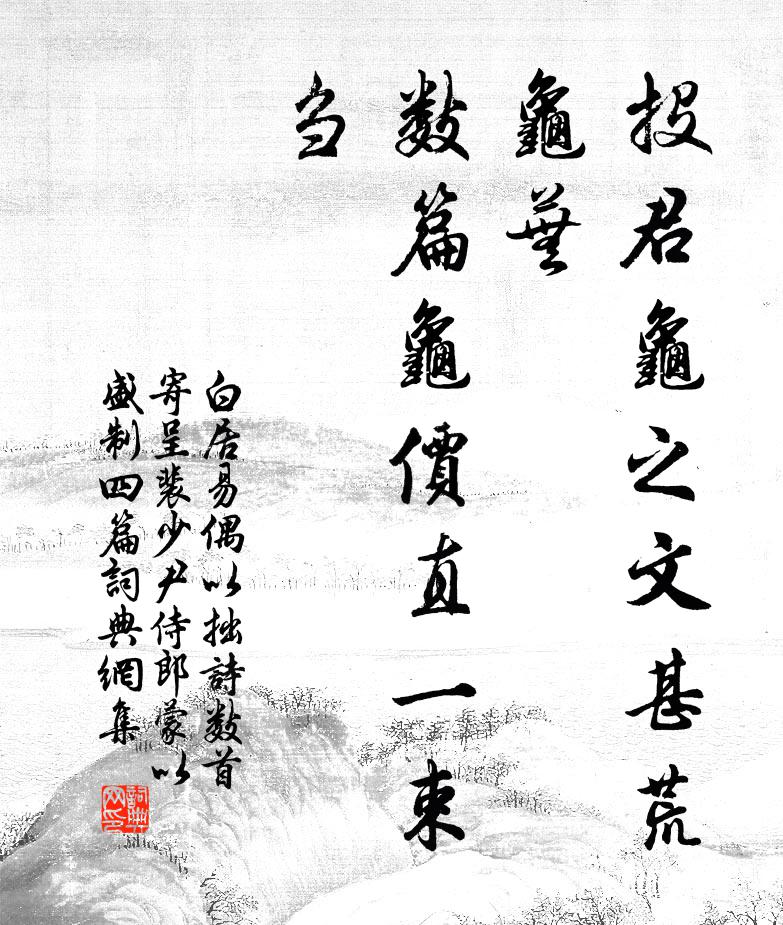 投君龜之文甚荒
龜蕪
数篇龜價直一束
刍
白居易偶以拙詩数首
寄呈裴少尹侍郎蒙以
盛制四篇詞典網集
詞典网印